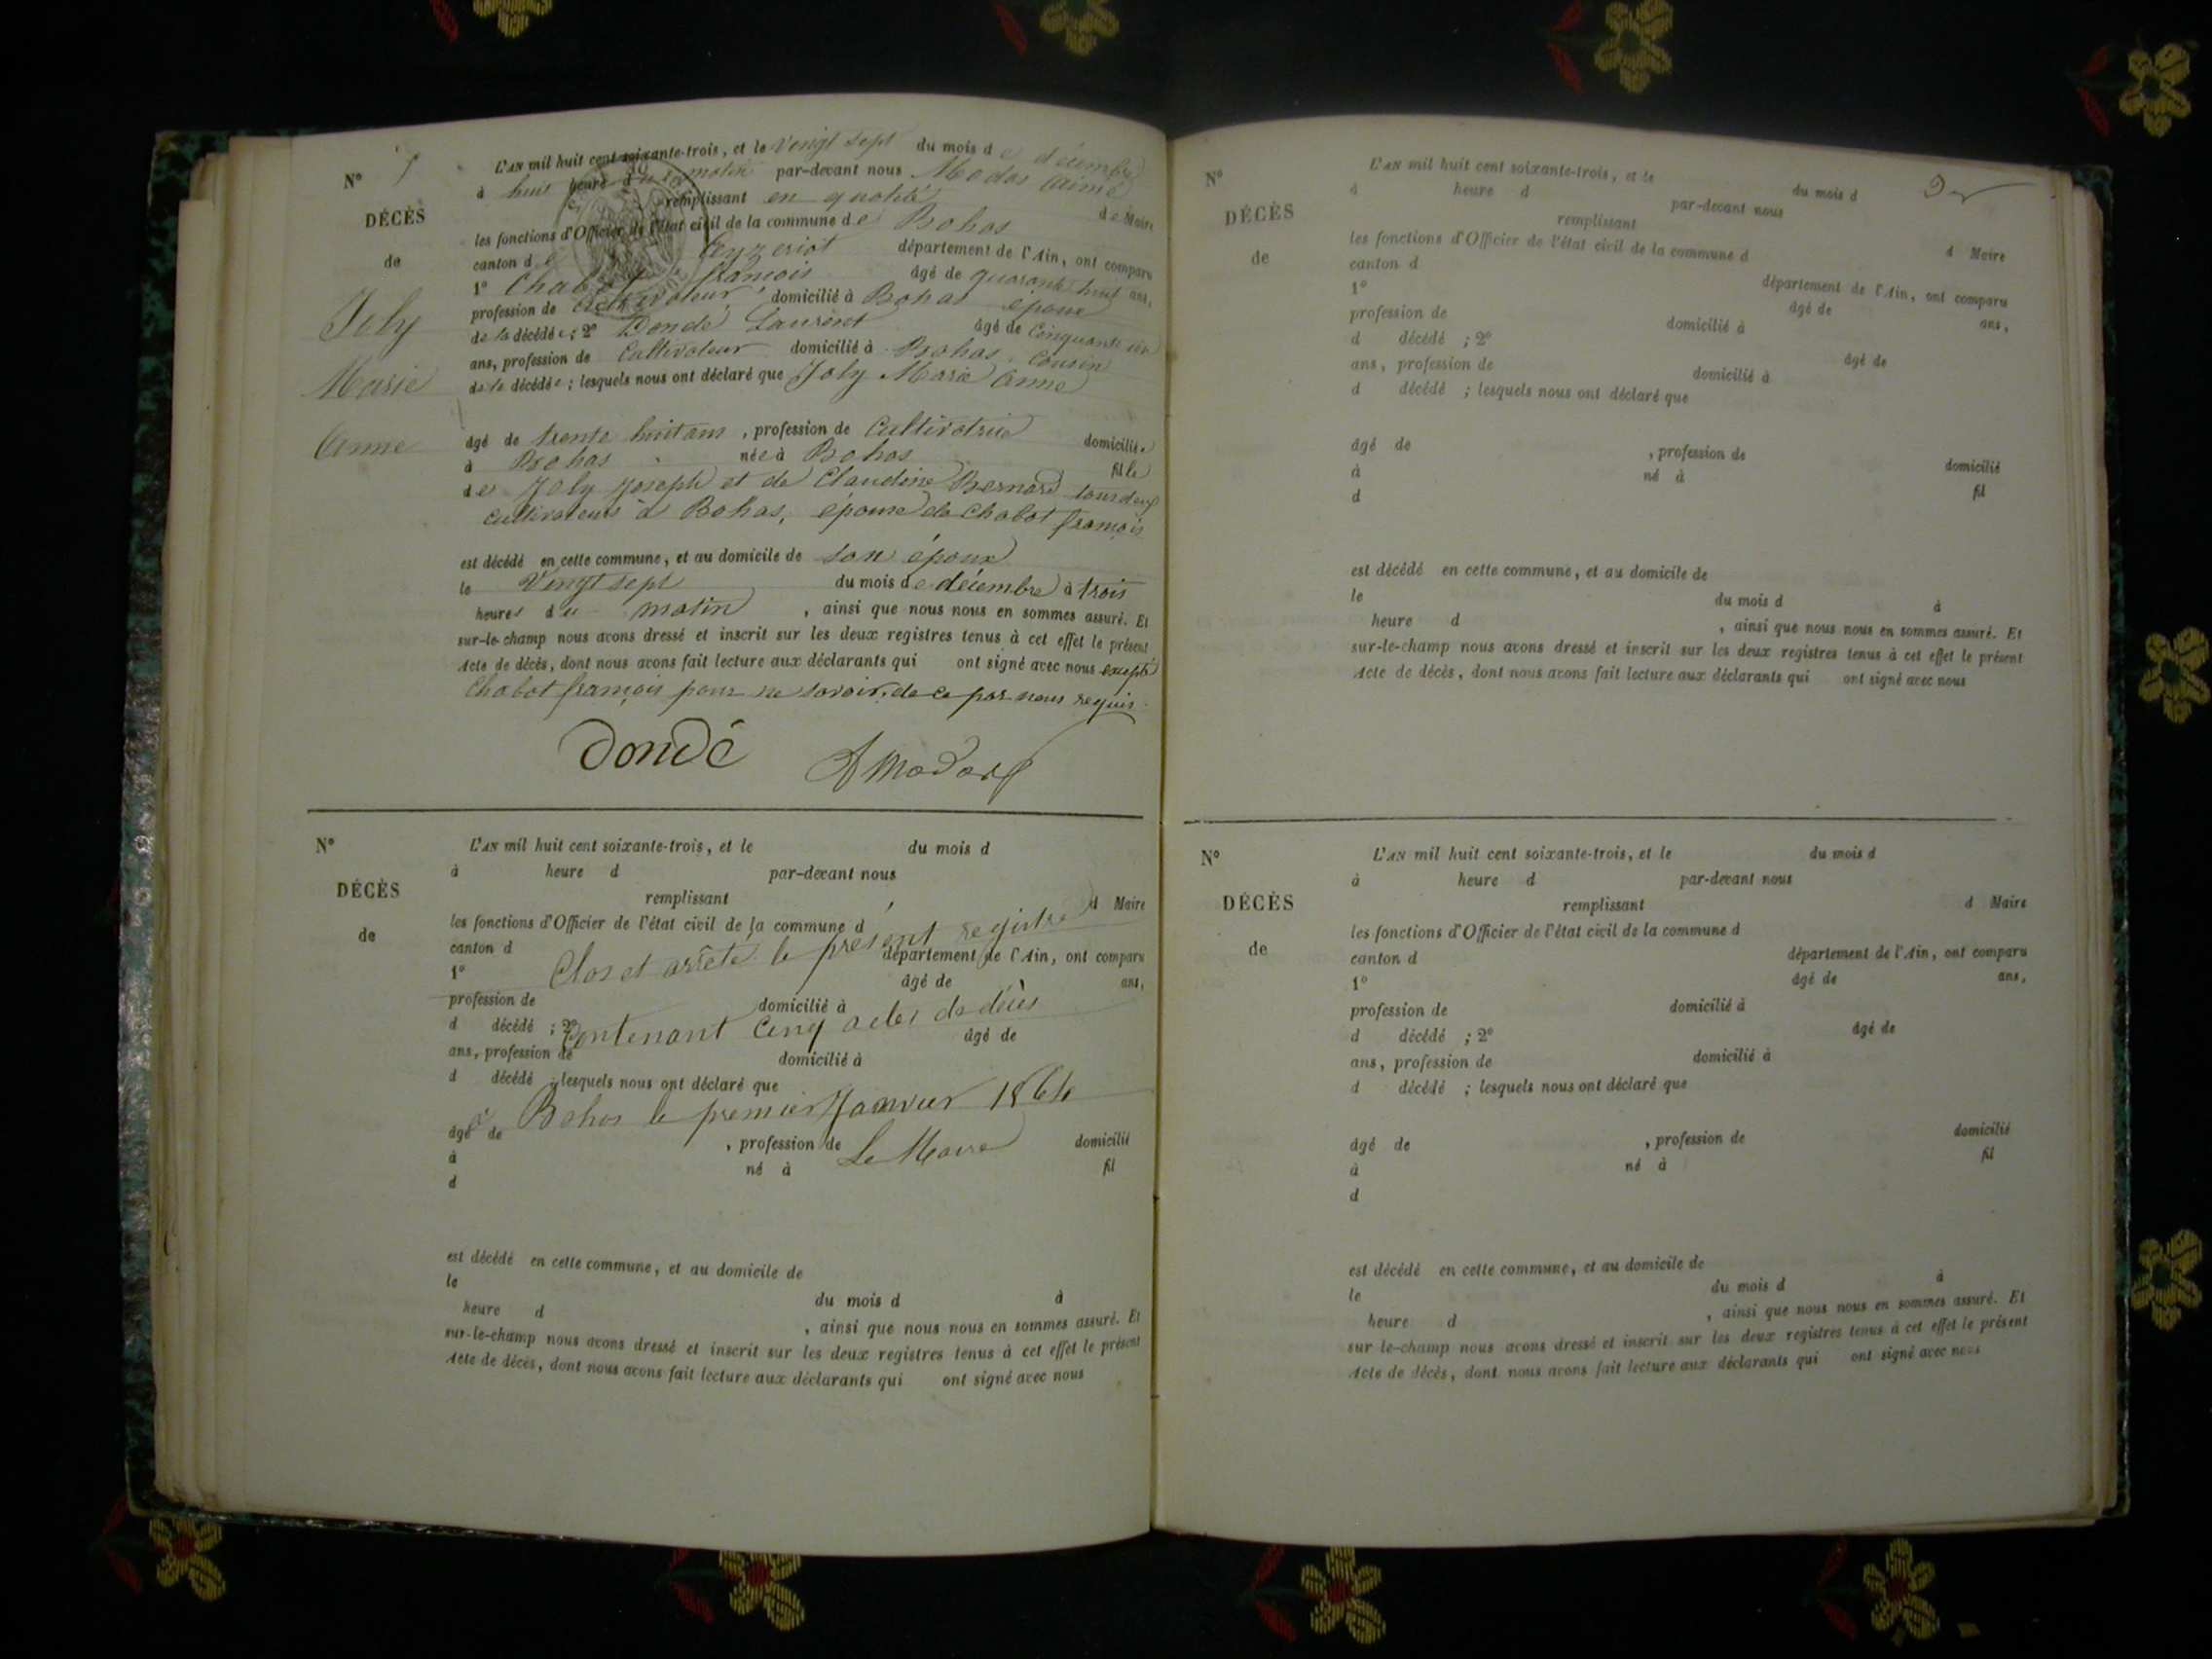 N° 5
DÉCÈS
de
Joly
Marie
Anne
L'AN mil huit cent soixante-trois, et le Vingt sept du mois de décembre
à huit heures du matin par-devant nous Modas Aimé
remplissant en qualité de Maire
les fonctions d'Officier de l'état civil de la commune de Bohas
canton de département de l'Ain, ont comparu
1° Chabot françois âgé de quarante huit ans,
profession de Cultivateur domicilié à Bohas époux
de la décédée ; 2° Dondé Laurent âgé de Cinquante six
ans, profession de Cultivateur domicilié à Bohas, Cousin
de la décédée ; lesquels nous ont déclaré que Joly Marie Anne
âgé de trente huit ans , profession de Cultivatrice domiciliée
à Bohas née à Bohas fille
de Joly joseph et de Claudine Bernard tous deux
cultivateurs à Bohas, épouse de Chabot françois
est décédé en cette commune, et au domicile de son époux
le Vingt sept du mois de décembre à trois
heures du matin , ainsi que nous nous en sommes assuré. Et
sur-le-champ nous avons dressé et inscrit sur les deux registres tenus à cet effet le présent
Acte de décès, dont nous avons fait lecture aux déclarants qui ont signé avec nous excepté
Chabot françois pour ne savoir, de ce par nous requis.
Dondé
N°
DÉCÈS
de
L'AN mil huit cent soixante-trois, et le du mois d
à heure d par-devant nous
remplissant d Maire
les fonctions d'Officier de l'état civil de la commune d
canton d département de l'Ain, ont comparu
Clos et arrêté le présent registre
1° âgé de ans,
profession de domicilié à
d décédé ; 2° âgé de
Contenant Cinq actes de décès
ans, profession de domicilié à
d décédé ; lesquels nous ont déclaré que
à Bohas le premier Janvier 1864
âgé de , profession de domicilié
Le Maire
à né à fil
d
est décédé en cette commune, et au domicile de
le du mois d à
heure d , ainsi que nous nous en sommes assuré. Et
sur-le-champ nous avons dressé et inscrit sur les deux registres tenus à cet effet le présent
Acte de décès, dont nous avons fait lecture aux déclarants qui ont signé avec nous
N°
DÉCÈS
de
L'AN mil huit cent soixante-trois, et le du mois d
à heure d par-devant nous
remplissant d Maire
les fonctions d'Officier de l'état civil de la commune d
canton d département de l'Ain, ont comparu
1° âgé de ans,
profession de domicilié à
d décédé ; 2° âgé de
ans, profession de domicilié à
d décédé ; lesquels nous ont déclaré que
âgé de , profession de domicilié
à né à fil
d
est décédé en cette commune, et au domicile de
le du mois d à
heure d , ainsi que nous nous en sommes assuré. Et
sur-le-champ nous avons dressé et inscrit sur les deux registres tenus à cet effet le présent
Acte de décès, dont nous avons fait lecture aux déclarants qui ont signé avec nous
N°
DÉCÈS
de
L'AN mil huit cent soixante-trois, et le du mois d
à heure d par-devant nous
remplissant d Maire
les fonctions d'Officier de l'état civil de la commune d
canton d département de l'Ain, ont comparu
1° âgé de ans,
profession de domicilié à
d décédé ; 2° âgé de
ans, profession de domicilié à
d décédé ; lesquels nous ont déclaré que
âgé de , profession de domicilié
à né à fil
d
est décédé en cette commune, et au domicile de
le du mois d à
heure d , ainsi que nous nous en sommes assuré. Et
sur-le-champ nous avons dressé et inscrit sur les deux registres tenus à cet effet le présent
Acte de décès, dont nous avons fait lecture aux déclarants qui ont signé avec nous